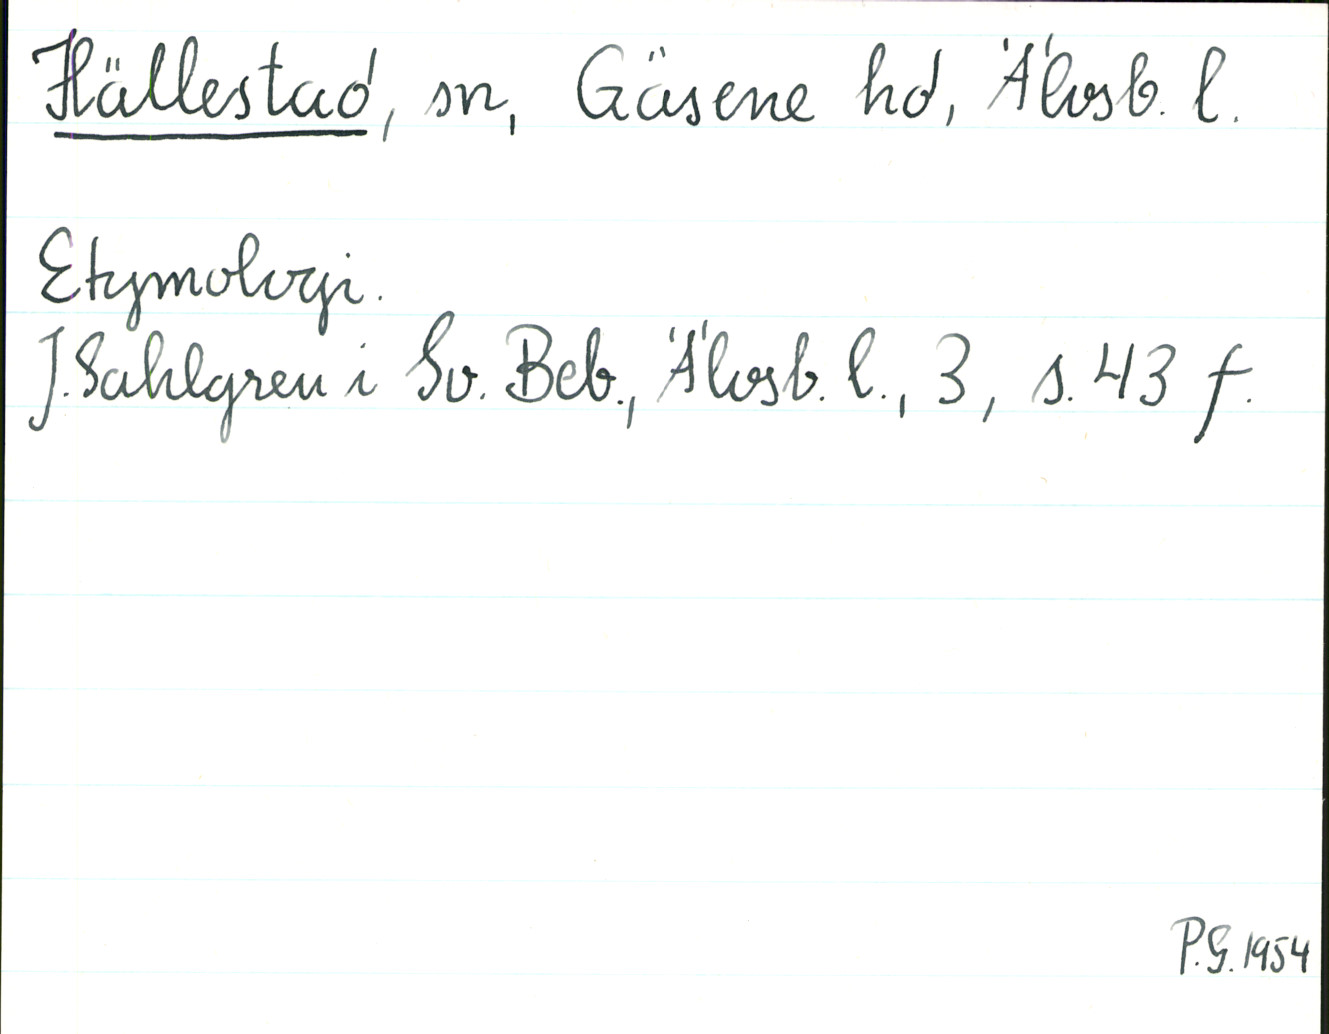 Hällestad, sn, Gäsene hd, Älvsb. l.
Etymologi.
J. Sahlgren i Sv. Beb., Älvsb. l., 3, s. 43 f.
P.G. 1954